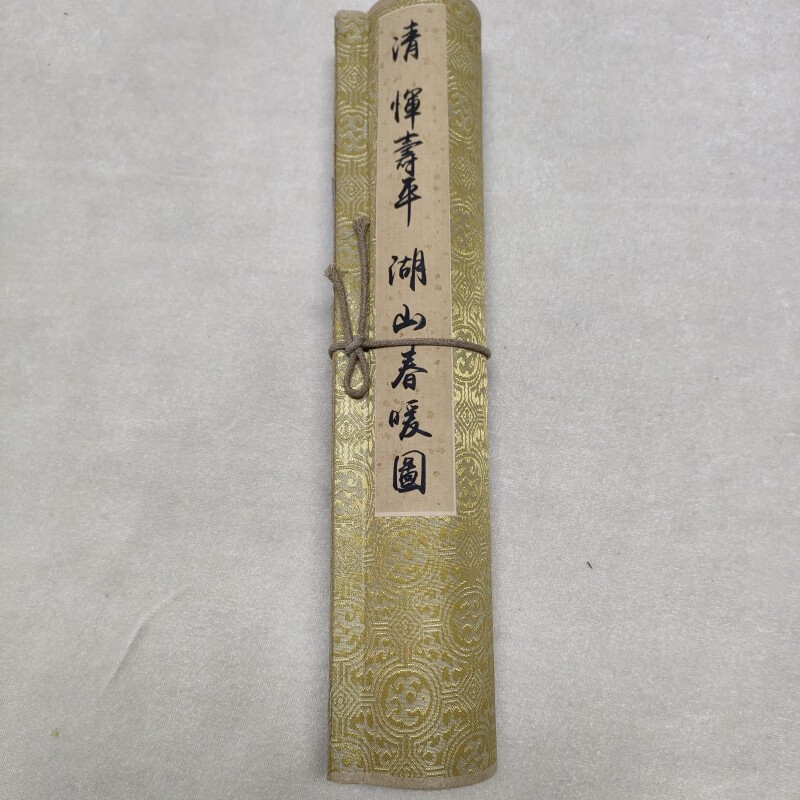 清 惲壽平 湖山春暖圖